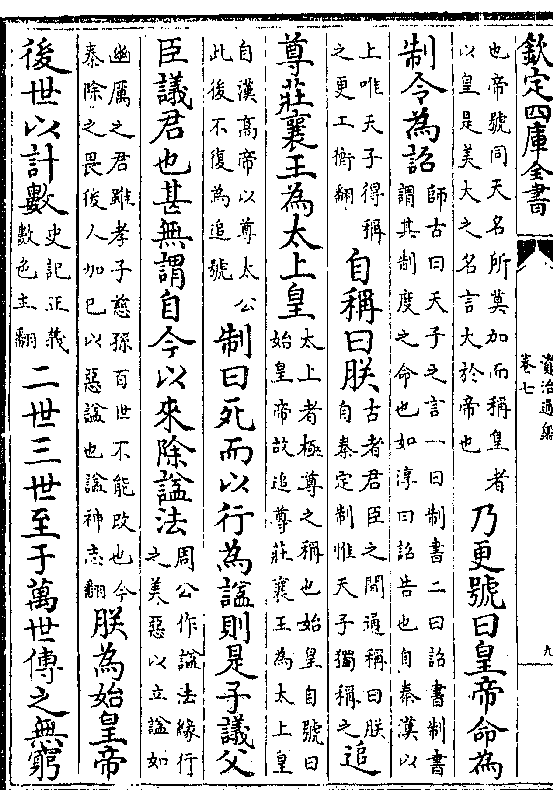 欽定四庫全書
資治通鑑
卷七
九
也帝號同天名所莫加而稱皇者
以皇是美大之名言大於帝也
乃更號曰皇帝命為
制令為詔
師古曰天子之言一曰制書二曰詔書制書
謂其制度之命也如淳曰詔告也自秦漢以
上唯天子得稱
之更工衡翻
自稱曰朕
古者君臣之間通稱曰朕
自秦定制惟天子獨稱之
追
尊莊襄王為太上皇
太上者極尊之稱也始皇自號曰
始皇帝故追尊莊襄王為太上皇
自漢髙帝以尊太公
此後不復為追號
制曰死而以行為諡則是子議父
臣議君也甚無謂自今以來除諡法
周公作諡法緣行
之美惡以立諡如
幽厲之君雖孝子慈孫百世不能改也今
秦除之畏後人加已以惡諡也諡神志翻
朕為始皇帝
後世以計數
史記正義
數色主翻
二世三世至于萬世傳之無窮